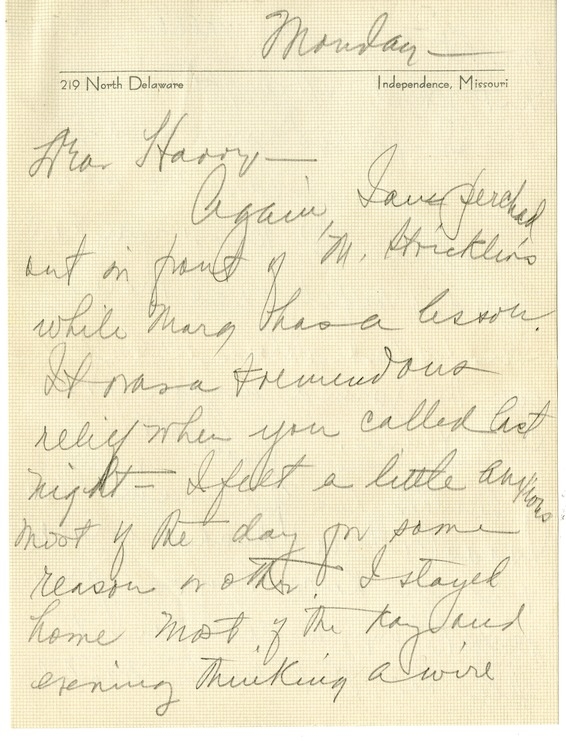 Monday —
219 North Delaware
Independence, Missouri
Dear Harry —
Again, I am perched
out in front of M. Stricklin's
while Marg has a lesson.
It was a tremendous
relief when you called last
night — I felt a little anxious
most of the day for some
reason or other. I stayed
home most of the day and
evening thinking a wire